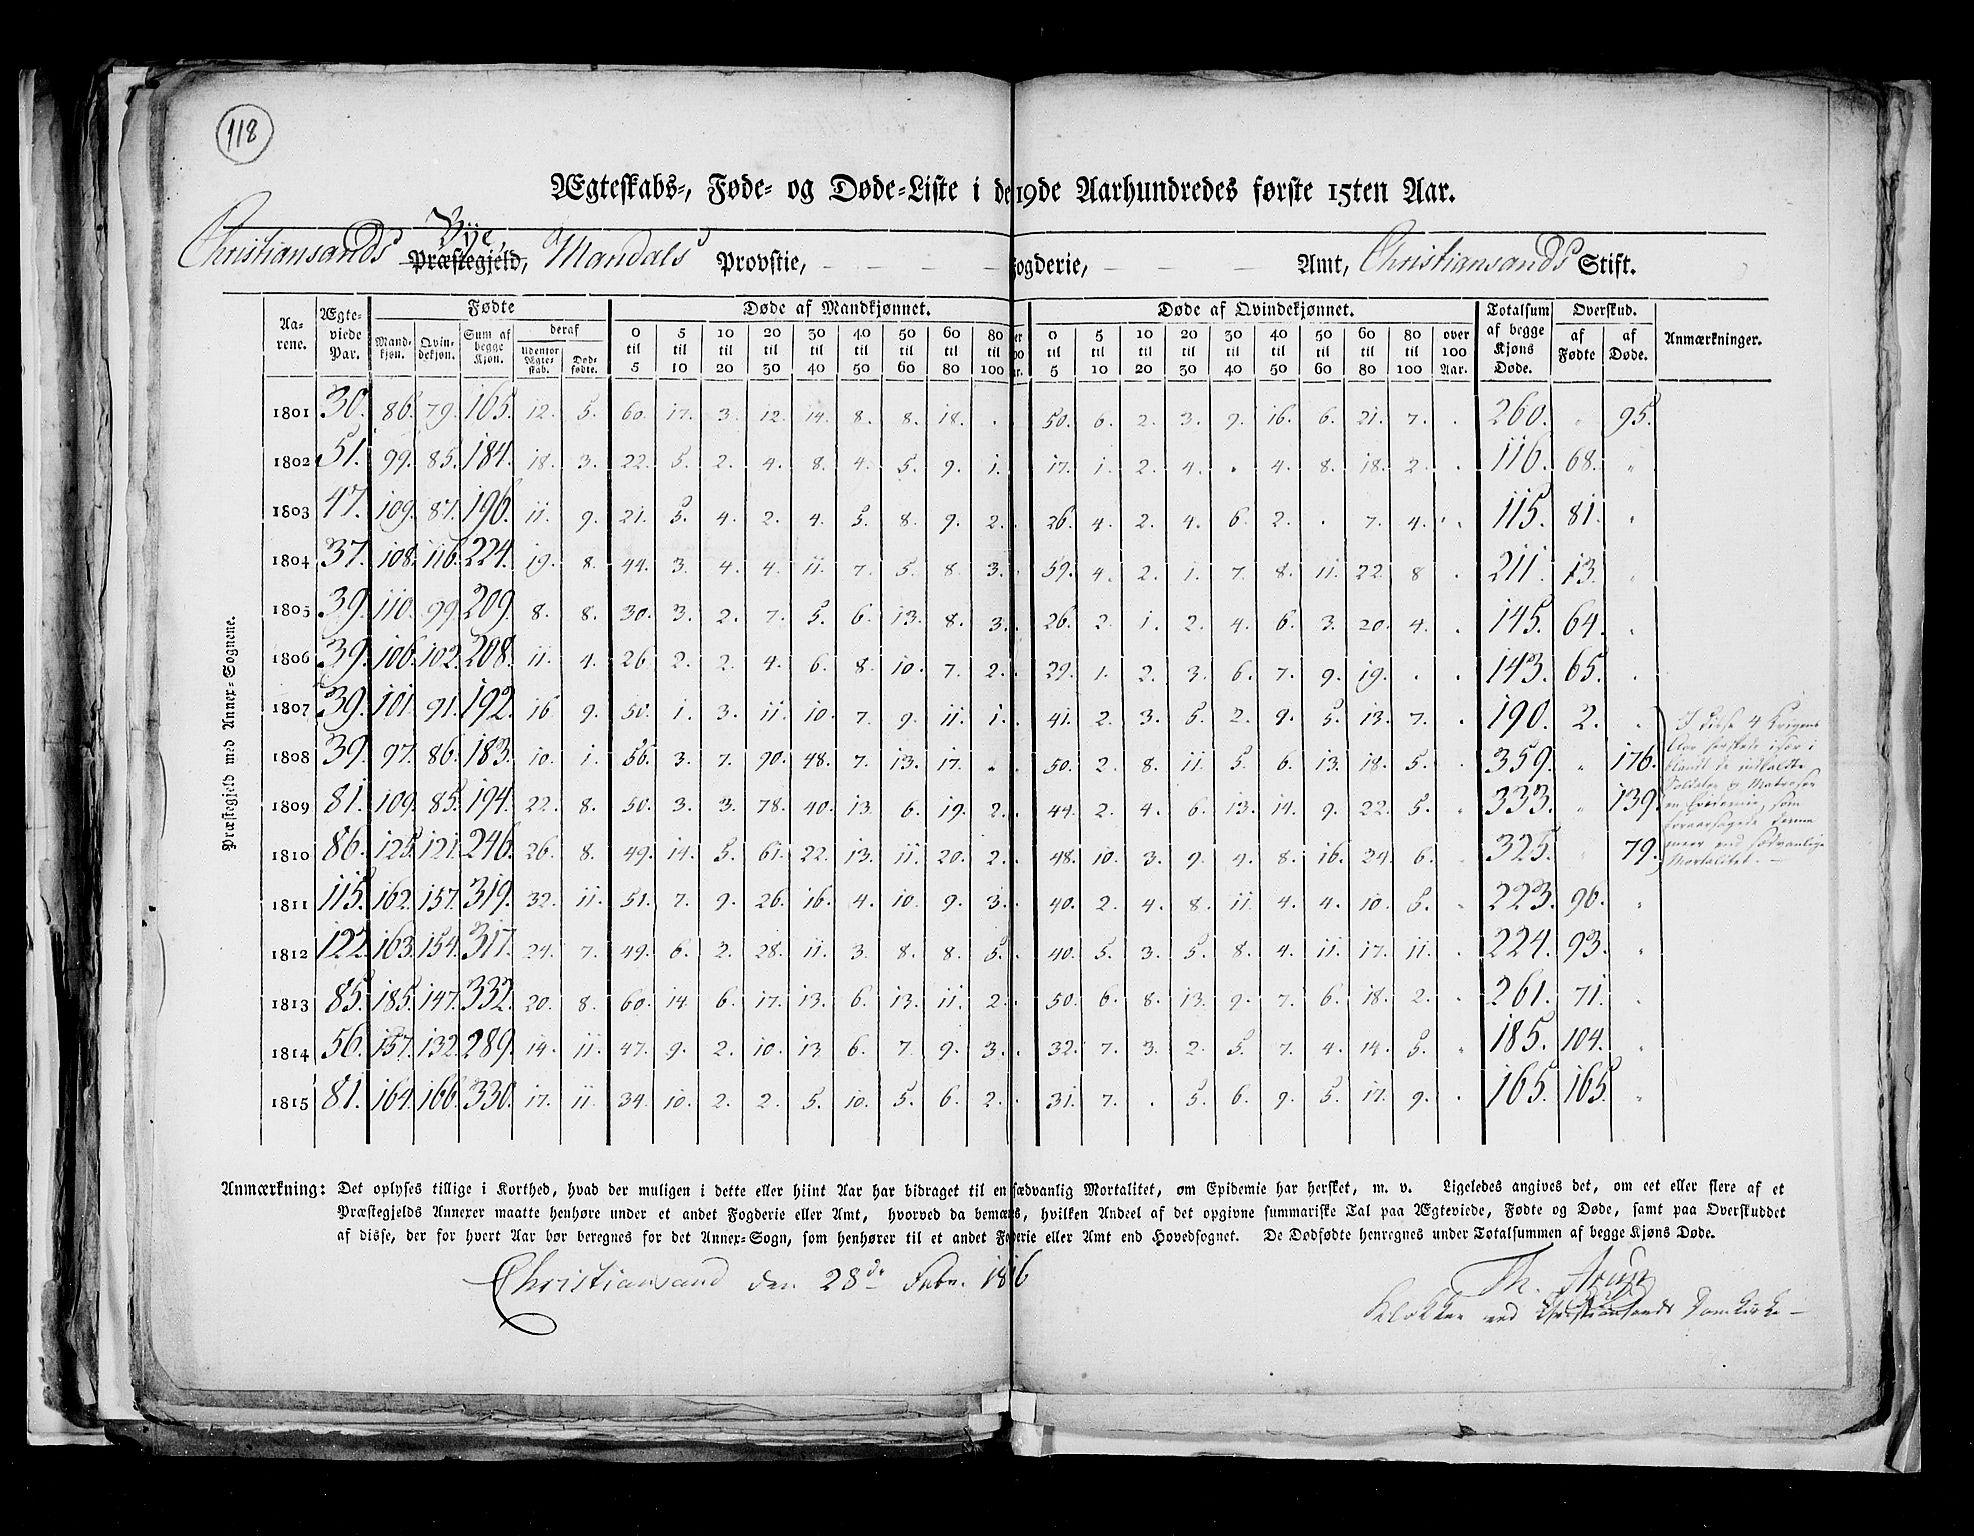 118
Ægteskabs-, Føde- og Døde-Liste i de 19de Aarhundredes første 15ten Aar.
Bye
Christiansands Præstegjeld, Mandals Provstie, Fogderie, Amt, Christiansands Stift.
Præstegjeld med Annex-Sognene.
Aarene. | Ægteviede Par. | Fødte | Døde af Mandkjønnet. | Døde af Qvindekjønnet. | Totalsum af begge Kjøns Døde. | Overskud. | Anmærkninger.
Mandkjøn. | Qvindekjøn. | Sum af begge Kjøn. | deraf udenfor Ægteskab. | Dødfødte. | 0 til 5 | 5 til 10 | 10 til 20 | 20 til 30 | 30 til 40 | 40 til 50 | 50 til 60 | 60 til 80 | 80 til 100 | 0 til 5 | 5 til 10 | 10 til 20 | 20 til 30 | 30 til 40 | 40 til 50 | 50 til 60 | 60 til 80 | 80 til 100 | over 100 Aar. | af Fødte | af Døde.
1801 30. 86. 79. 165. 12. 5. 60. 17. 3. 12. 14. 8. 8. 18. . . 50. 6. 2. 3. 9. 16. 6. 21. 7. . 260. " 95.
1802 51. 99. 85. 184. 18. 3. 22. 5. 2. 4. 8. 4. 5. 9. 1. 17. 1. 2. 4. . 4. 8. 18. 2. . 116. 68. "
1803 47. 109. 87. 196. 11. 9. 21. 5. 4. 2. 4. 5. 8. 9. 2. . 26. 4. 2. 4. 6. 2. . 7. 4. . 115. 81. "
1804 37. 108. 116. 224. 19. 8. 44. 3. 4. 4. 11. 7. 5. 8. 3. . 59. 4. 2. 1. 7. 8. 11. 22. 8 . 211. 13. "
1805 39. 110. 99. 209. 8. 8. 30. 3. 2. 7. 5. 6. 13. 8. 3. . 26. 2. 1. 2. 4. 6. 3. 20. 4. . 145. 64. "
1806 39. 106. 102. 208. 11. 4. 26 2. 2. 4. 6. 8. 10. 7. 2. . 29. 1. 2. 3. 6. 7. 9. 19. . . 143. 65. "
1807 39. 101. 91. 192. 16 9. 50. 1. 3. 11. 10. 7. 9. 11. 1. . 41. 2. 3. 5. 2. 9. 5. 13. 7. . 190. 2. "
1808 39. 97. 86. 183. 10. 1. 56. 3. 7. 90. 48. 7. 13. 17. . . 50. 2. 8. 11. 5. 6. 13. 18. 5. . 359. " 176.
1809 81. 109. 85. 194. 22. 8. 50. 3. 3. 78. 40. 13. 6. 19. 2. . 44. 2. 4. 6. 13. 14. 9. 22. 5. . 333. " 139.
1810 86. 125. 121. 246. 26. 8. 49. 14. 5. 61. 22. 13. 11. 20. 2. . 48. 10. 3. 9. 4. 8. 16. 24. 6. . 325. " 79.
1811 115. 162. 157. 319. 32. 11. 51. 7. 9. 26. 16. 4. 10. 9. 3. . 40. 2. 4. 8. 11. 4. 4. 10. 5. . 223. 96. "
1812 122. 163. 154. 317. 24. 7. 49. 6. 2. 28. 11. 3. 8. 8. 5. . 40. 5. 3. 5. 8. 4. 11. 17. 11. . 224. 93. "
1813 85. 185. 147. 332. 20. 8. 60. 14 6. 17. 13. 6. 13. 11. 2. . 50. 6. 8. 13. 9. 7. 6. 18. 2. . 261. 71. "
1814 56. 157. 132. 289. 14. 11. 47. 9. 2. 10. 13 6. 7. 9. 3. . 32. 7. 3. 2. 5. 7. 4. 14. 5. . 185. 104. "
1815 81. 164. 166. 330. 17. 11. 34. 10. 2. 2. 5. 10. 5. 6. 2. . 31. 7. . 5. 6. 9. 5. 17. 9. . 165. 165. "
I disse 4 Krigens
Aar herskede især i
blandt de indkaldte
Soldater og Matroser
en Epidemie, som
foraarsagede denne
meer end sædvanlige
Mortalitet. —
Anmærkning: Det oplyses tillige i Korthed, hvad der muligen i dette eller hiint Aar har bidraget til en sædvanlig Mortalitet, om Epidemie har hersket, m. v. Ligeledes angives det, om eet eller flere af et
Præstegjelds Annexer maatte henhøre under et andet Fogderie eller Amt, hvorved da bemærkes, hvilken Andeel af det opgivne summariske Tal paa Ægteviede, Fødte og Døde, samt paa Overskuddet
af disse, der for hvert Aar bør beregnes for det Annex-Sogn, som henhører til et andet Fogderie eller Amt end Hovedsognet. De Dødfødte henregnes under Totalsummen af begge Kjøns Døde.
Christiansand den 28de Febr. 1816
Th.
Klokker ved Christiansands Domkirke —